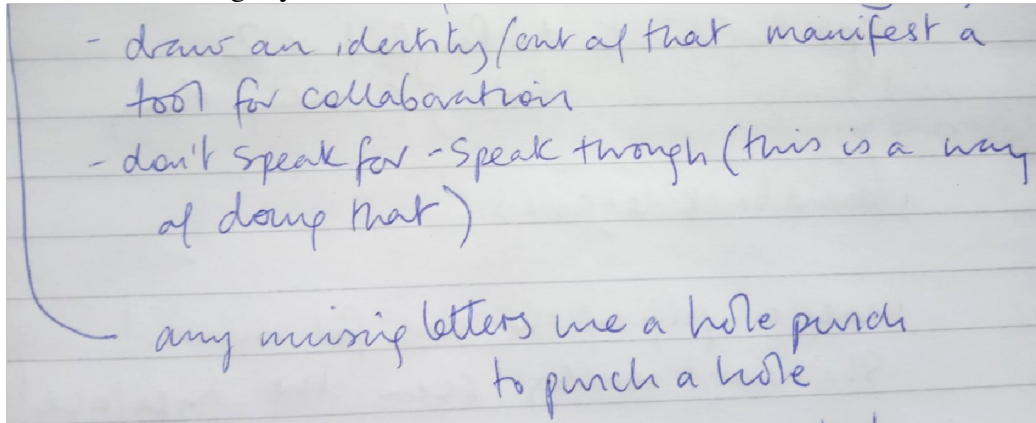 - draw an identity/out of that manifest a
tool for collaboration
- don't speak for - speak through (this is a way
of doing that)
any missing letters use a hole punch
to punch a hole